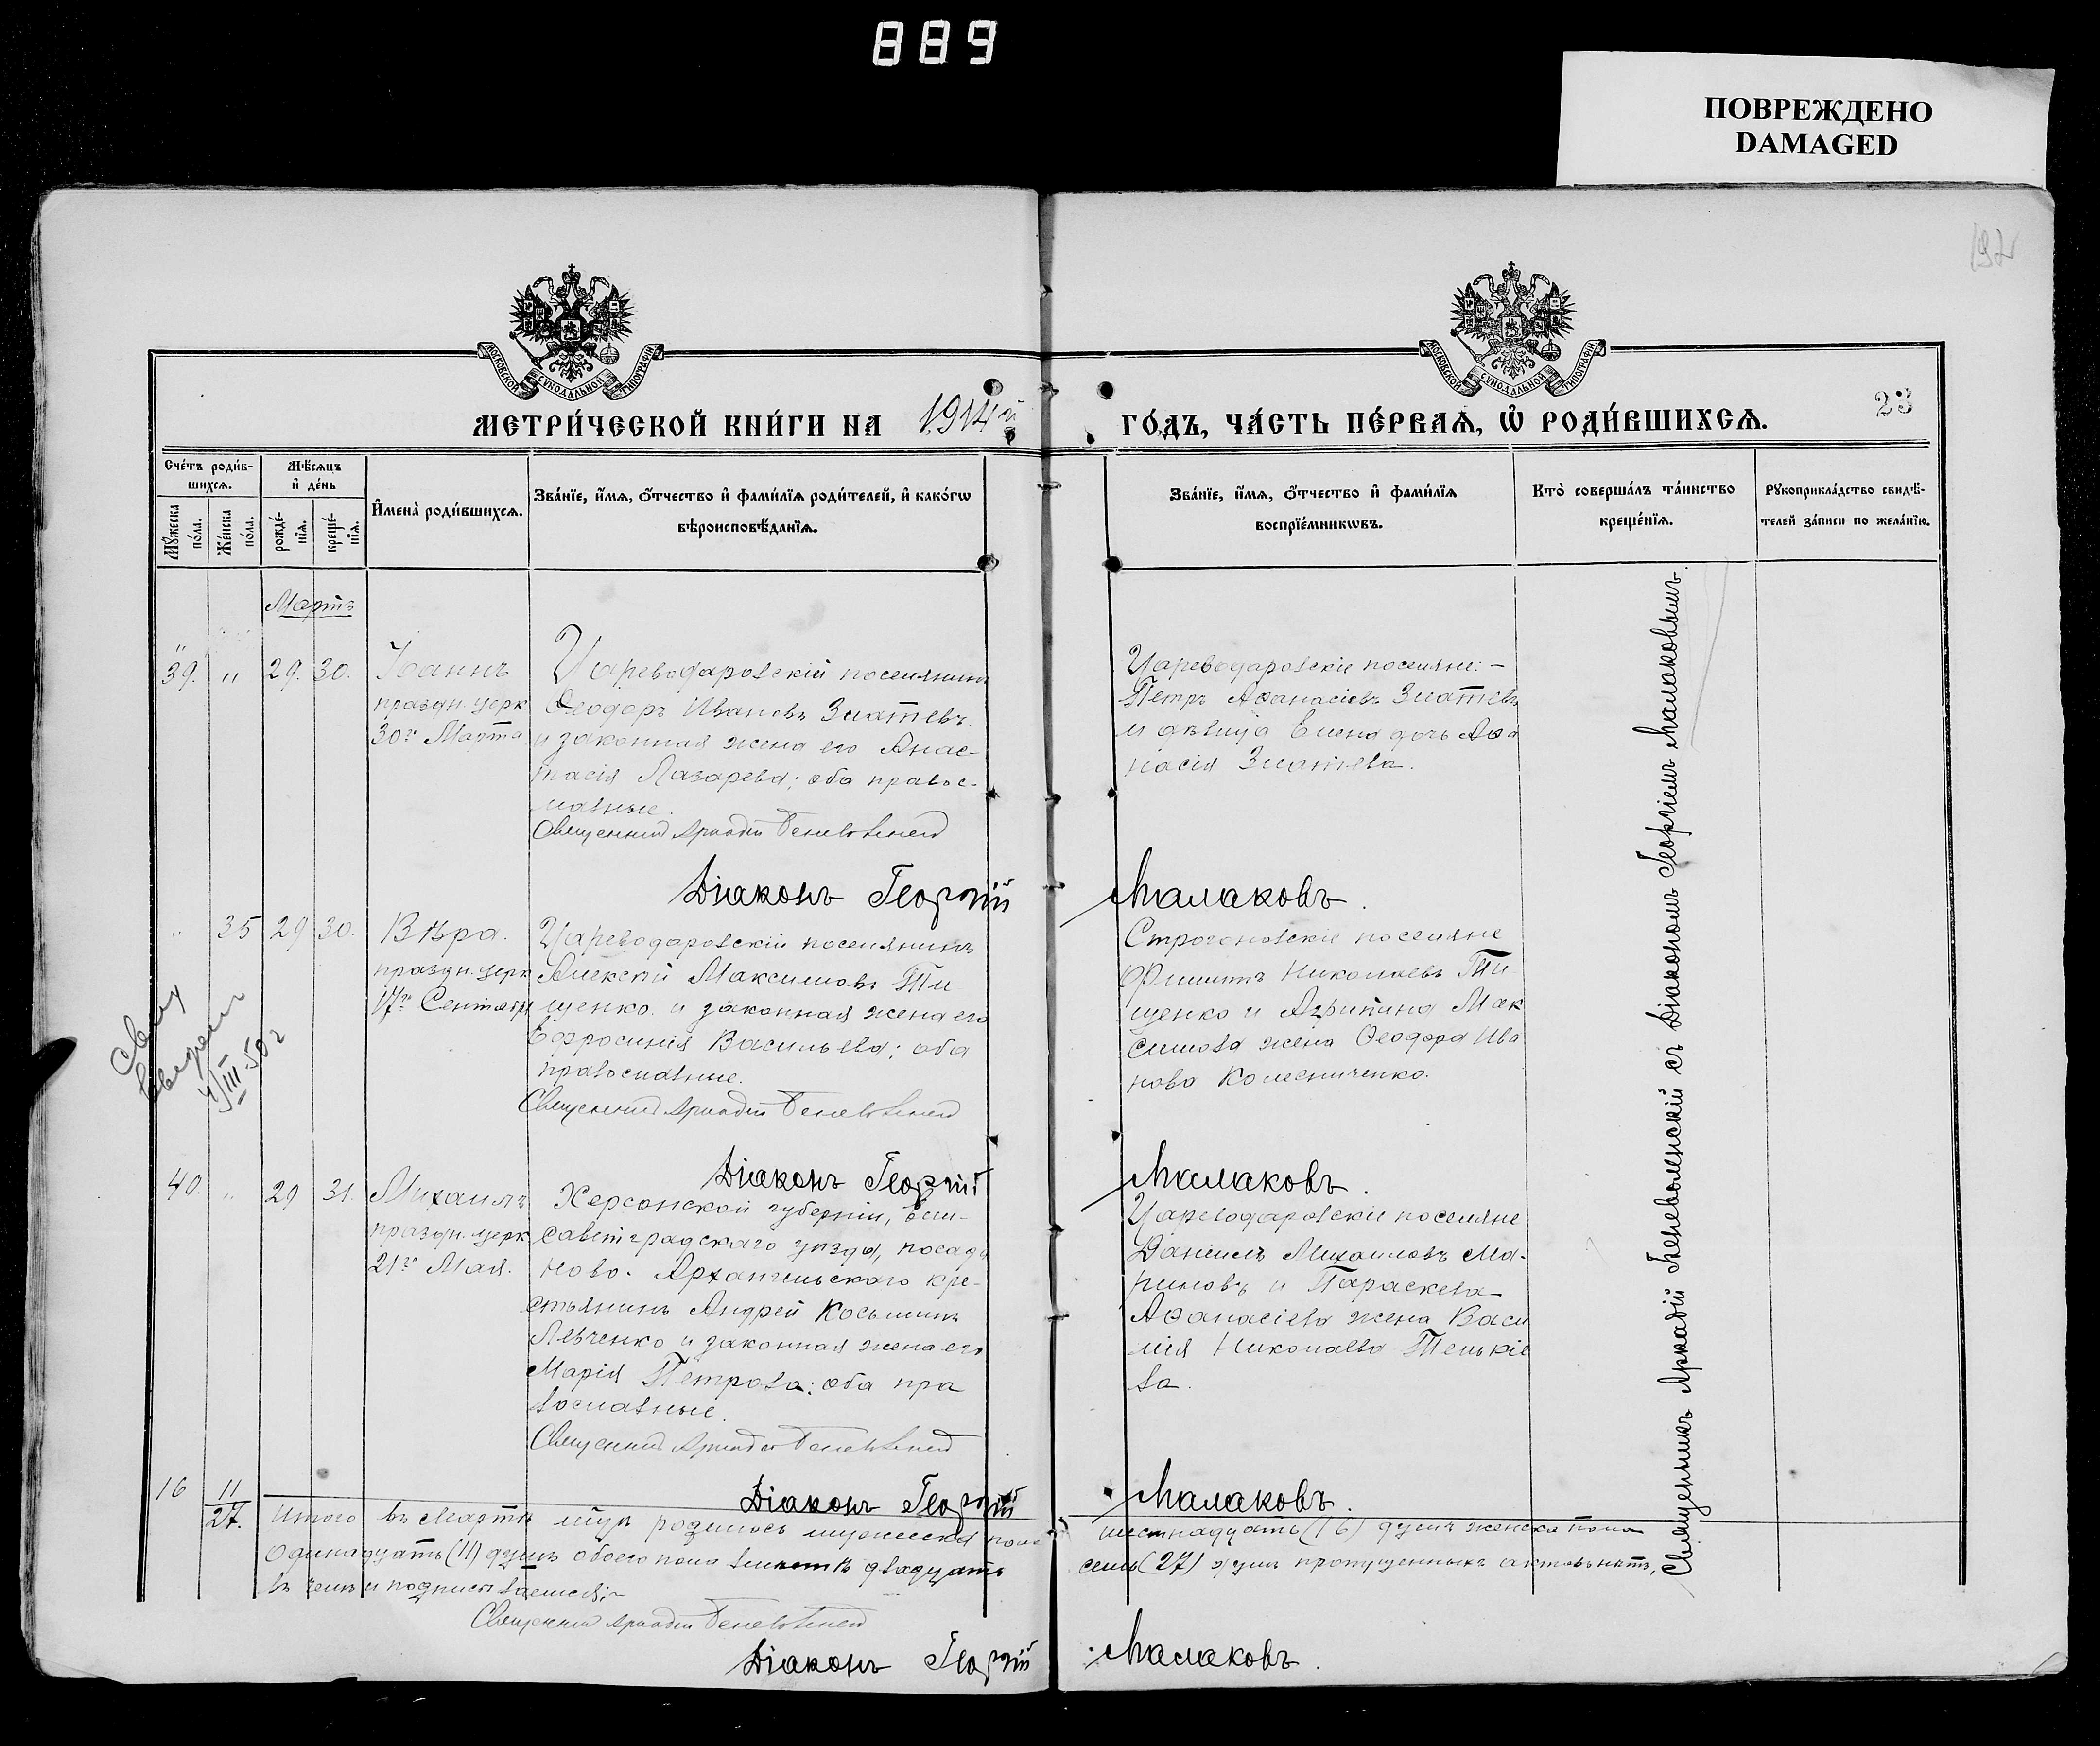 889
ПОВРЕЖДЕНО
DAMAGED
МОСКОВСКОЙ СѴНОДАЛЬНОЙ ТИПОГРАФІИ
МОСКОВСКОЙ СѴНОДАЛЬНОЙ ТИПОГРАФІИ
23
МЕТРИ́ЧЕСКОЙ КНИ́ГИ НА 1914й ГО́ДЪ, ЧА́СТЬ ПЕ́РВАѦ, Ѡ҆ РОДИ́ВШИХСѦ.
Счетъ роди́в-
шихсѧ.
Мꙋжеска
по́ла.
Же́нска
по́ла.
Мѣ́сѧцъ
и҆ де́нь
рожде́-
нїѧ.
креще́-
нїѧ.
И҆мена̀ роди́вшихсѧ.
Зва́нїе, и҆́мѧ, ѻ҆́тчество и҆ фами́лїѧ роди́телей, и҆ како́гѡ
вѣроисповѣ́данїѧ.
Зва́нїе, и҆́мѧ, ѻ҆́тчество и҆ фами́лїѧ
воспрїе́мникѡвъ.
Кто̀ соверша́лъ та́инство
креще́нїѧ.
Рꙋкоприкла́дство свидѣ́-
телей за́писи по жела́нїю.
Мартъ
39. " 29. 30.
Іоаннъ
праздн. церк
30го Марта
Цареводаровскій поселянинъ
Ѳеодоръ Ивановъ Златевъ
и законная жена его Анас-
тасія Лазарева; оба правос-
лавные.
Священникъ Аркадій Беневоленскій
Діаконъ Георгій Малаковъ.
Цареводаровскіе поселяне:-
Петръ Аѳанасіевъ Златевъ
и дѣвица Елена дочь Аѳа
насія Златева.
" 35 29 30.
Вѣра.
праздн. церк
17го Сентябр
Цареводаровскій поселянинъ
Алексій Максимовъ Ти
щенко и законная жена его
Евфросинія Васильева; оба
православные.
Священникъ Аркадій Беневоленскій
Діаконъ Георгій Малаковъ.
Строгоновскіе поселяне
Филиппъ Николаевъ Ти
щенко и Агрипина Мак
симова жена Ѳеодора Ива
нова Колесниченко.
4/III 50 г
40. " 29 31.
Михаилъ
праздн. церк.
21го Мая.
Херсонской губерніи, Ели-
саветградскаго уѣзда, посада
Ново-Архангельскаго кре-
стьянинъ Андрей Косьминъ
Левченко и законная жена его
Марія Петрова: оба пра
вославные.
Священникъ Аркадій Беневоленскій
Діаконъ Георгій Малаковъ.
Цареводаровскіе поселяне
Даніилъ Михаиловъ Ма-
риновъ и Параскева
Аѳанасіева жена Васи
лія Николаева Тенькіе
ва.
Священникъ Аркадій Беневоленскій съ Діакономъ Георгіемъ Малаковымъ.
16 11
27.
Итого въ Мартѣ мцѣ родилось мужеска пола шестнадцать (16) душъ женска пола
одинадцать (11) душъ обоего пола вмѣстѣ двадцать семь (27) душъ пропущенныхъ актовъ нѣтъ,
въ чемъ и подписываемся:-
Священникъ Аркадій Беневоленскій
Діаконъ Георгій Малаковъ.